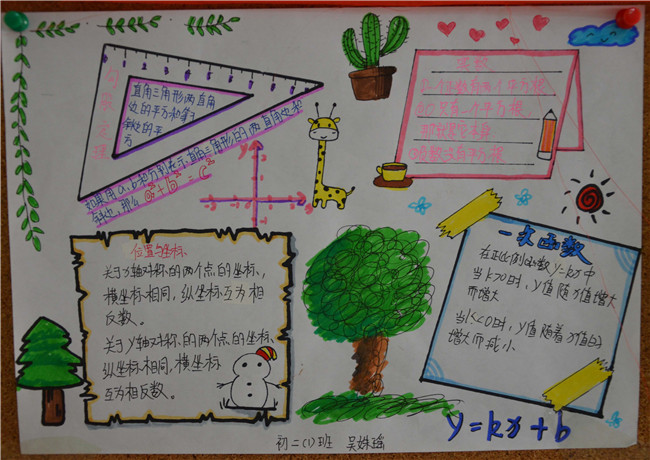 勾股定理
直角三角形两直角
边的平方和等于
斜边的平
方
如果用a,b和c分别表示直角三角形的两直角边和
斜边,那么a²+b²=c²
y
x
实数
①一个正数有两个平方根
②0只有一个平方根,
那就是0本身
③负数没有平方根
位置与坐标
关于x轴对称的两个点的坐标,
横坐标相同,纵坐标互为相
反数。
关于y轴对称的两个点的坐标
纵坐标相同,横坐标
互为相反数。
一次函数
在正比例函数y=kx中
当k>0时,y值随x值增大
而增大
当k<0时,y值随着x值的
增大而减小
y=kx+b
初二(1)班 吴姝瑶